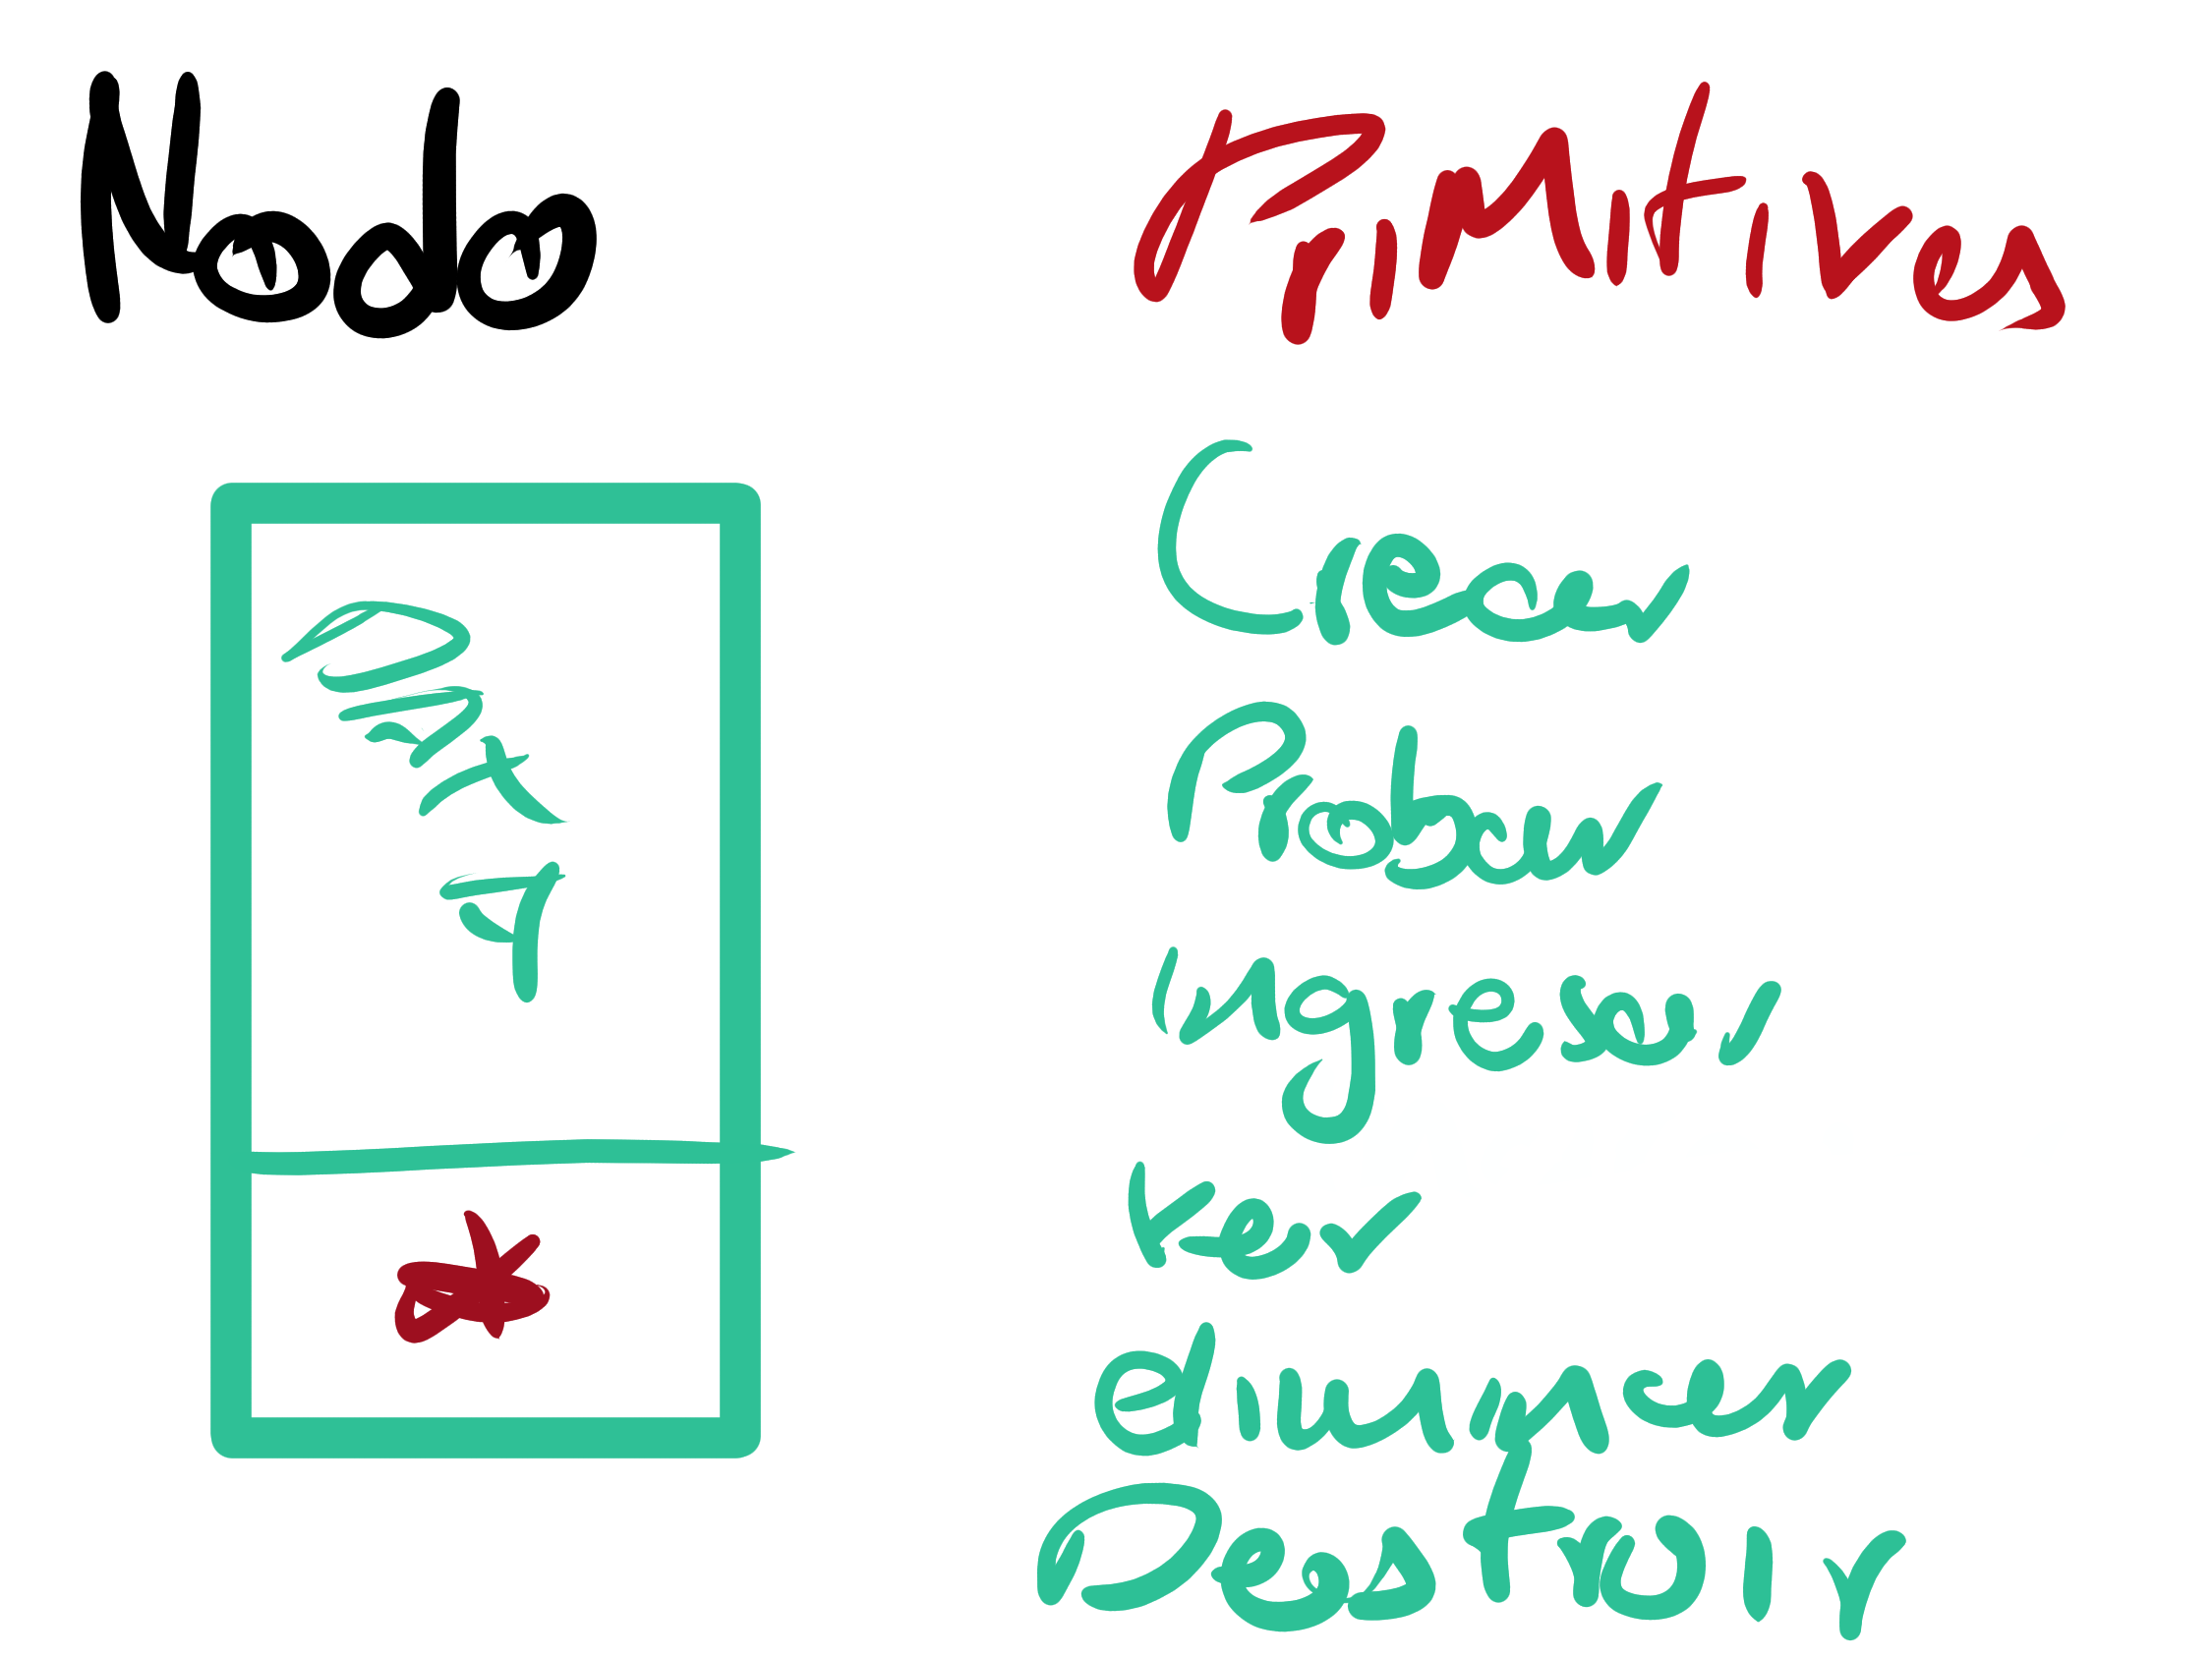 Nodo
Primitivas
Crear
Probar
Ingresar
eliminar
Destruir